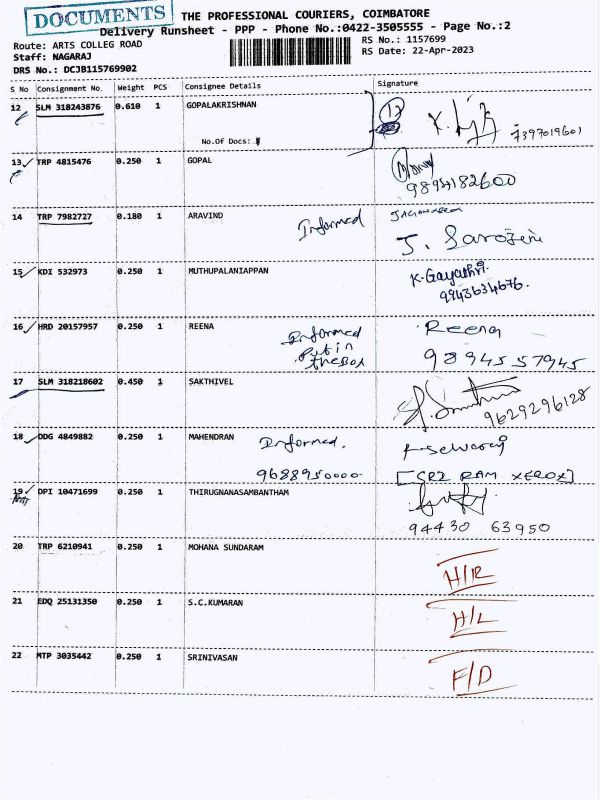 DOCUMENTS
THE PROFESSIONAL COURIERS, COIMBATORE
Delivery Runsheet - PPP - Phone No.:0422-3505555 - Page No.:2
Route: ARTS COLLEG ROAD
RS No.: 1157699
Staff: NAGARAJ
RS Date: 22-Apr-2023
DRS No.: DCJB115769902
S No Consignment No. Weight PCS Consignee Details Signature
12 SLM 318243876 0.610 1 GOPALAKRISHNAN
No.Of Docs:
7397019601
13 TRP 4815476 0.250 1 GOPAL
14 TRP 7982727 0.180 1 ARAVIND Informed
J. Sarojini
15 KDI 532973 0.250 1 MUTHUPALANIAPPAN K. Gayathri.
9943634676.
16 HRD 20157957 0.250 1 REENA Reena
Informed
Put in
the Box
9894557945
17 SLM 318218602 0.450 1 SAKTHIVEL
9629296128
18 DDG 4849882 0.250 1 MAHENDRAN Informed. K. Selvaraj
9688950000 [SRI RAM XEROX]
19 DPI 10471699 0.250 1 THIRUGNANASAMBANTHAM
94430 63950
20 TRP 6210941 0.250 1 MOHANA SUNDARAM
H/R
21 EDQ 25131350 0.250 1 S.C.KUMARAN
H/L
22 MTP 3035442 0.250 1 SRINIVASAN
F/D